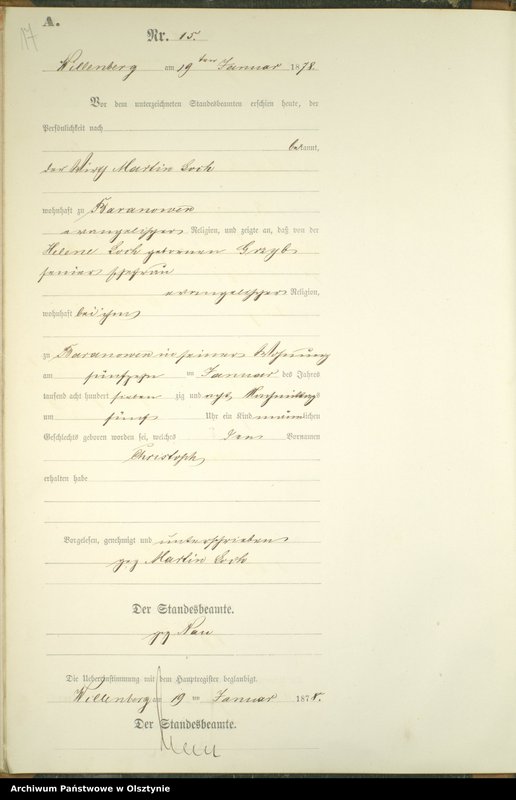 A.
17
Nr. 15.
Willenberg am 19ten Januar 1878.
Vor dem unterzeichneten Standesbeamten erschien heute, der
Persönlichkeit nach
bekannt,
der Wirth Martin Loch
wohnhaft zu Baranowen
evangelischer Religion, und zeigte an, daß von der
Helene Loch geborenen Grzyb
seiner Ehefrau
evangelischer Religion,
wohnhaft bei ihm
zu Baranowen in seiner Wohnung
am fünfzehn ten Januar des Jahres
tausend acht hundert sieben zig und acht Nachmittags
um fünf Uhr ein Kind männlichen
Geschlechts geboren worden sei, welches den Vornamen
Christoph
erhalten habe
Vorgelesen, genehmigt und unterschrieben
gez Martin Loch
Der Standesbeamte.
gez Nau
Die Uebereinstimmung mit dem Hauptregister beglaubigt.
Willenberg am 19 ten Januar 1878.
Der Standesbeamte.
Nau
Archiwum Państwowe w Olsztynie